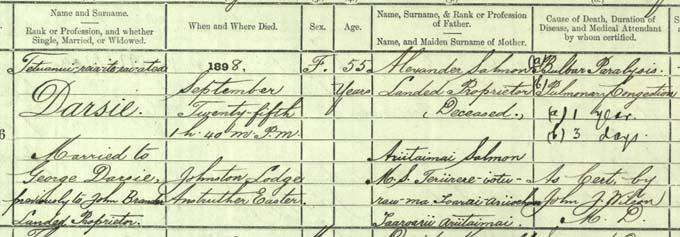 Name and Surname.
Rank or Profession, and whether
Single, Married, or Widowed.
When and Where Died.
Sex.
Age.
Name, Surname, & Rank or Profession
of Father.
Name, and Maiden Surname of Mother.
Cause of Death, Duration of
Disease, and Medical Attendant
by whom certified.
Darsie.
Married to
George Darsie,
previously to John Brander
Landed Proprietor.
1898.
September
Twenty-fifth
1 h. 40 m. P.m.
Johnston Lodge
Anstruther Easter
F.
55
Years
Alexander Salmon
Landed Proprietor
(Deceased.)
Ariitaimai Salmon
M.S.
(a) Bulbar Paralysis.
(b) Pulmonary Congestion
(a) 1 year.
(b) 3 days.
As Cert. by
John J. Wilson
M. D.
6